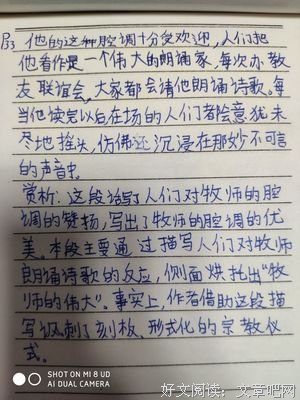 P33 他的这种腔调十分受欢迎,人们把
他看作是一个伟大的朗诵家,每次办教
友联谊会,大家都会请他朗诵诗歌。每
当他读完以后在场的人们都会意犹未
尽地摇头,仿佛还沉浸在那妙不可言
的声音中。
赏析:这段话写了人们对牧师的腔
调的赞扬,写出了牧师的腔调的优
美。本段主要通过描写人们对牧师
朗诵诗歌的反应,侧面烘托出“牧
师的伟大”。事实上,作者借助这段描
写讽刺了刻板、形式化的宗教仪
式。
SHOT ON MI 8 UD
AI DUAL CAMERA
好文阅读:文章吧网